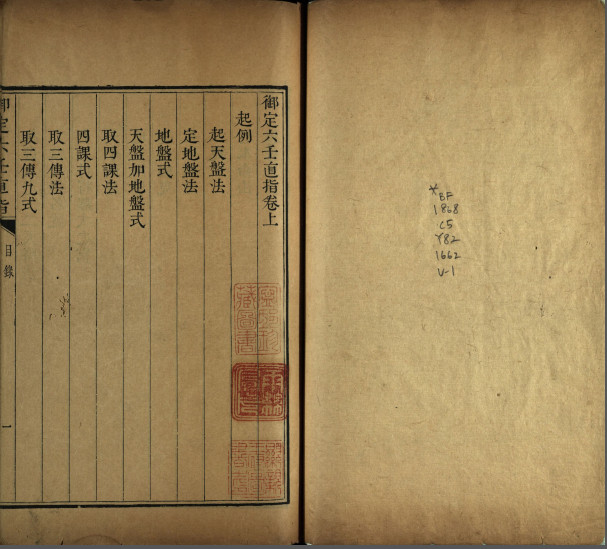 BF
1868
C5
Y82
1662
V-1
御定六壬直指卷上
起例
起天盤法
定地盤法
地盤式
天盤加地盤式
取四課法
四課式
取三傳法
取三傳九式
御定六壬直指
目錄
一